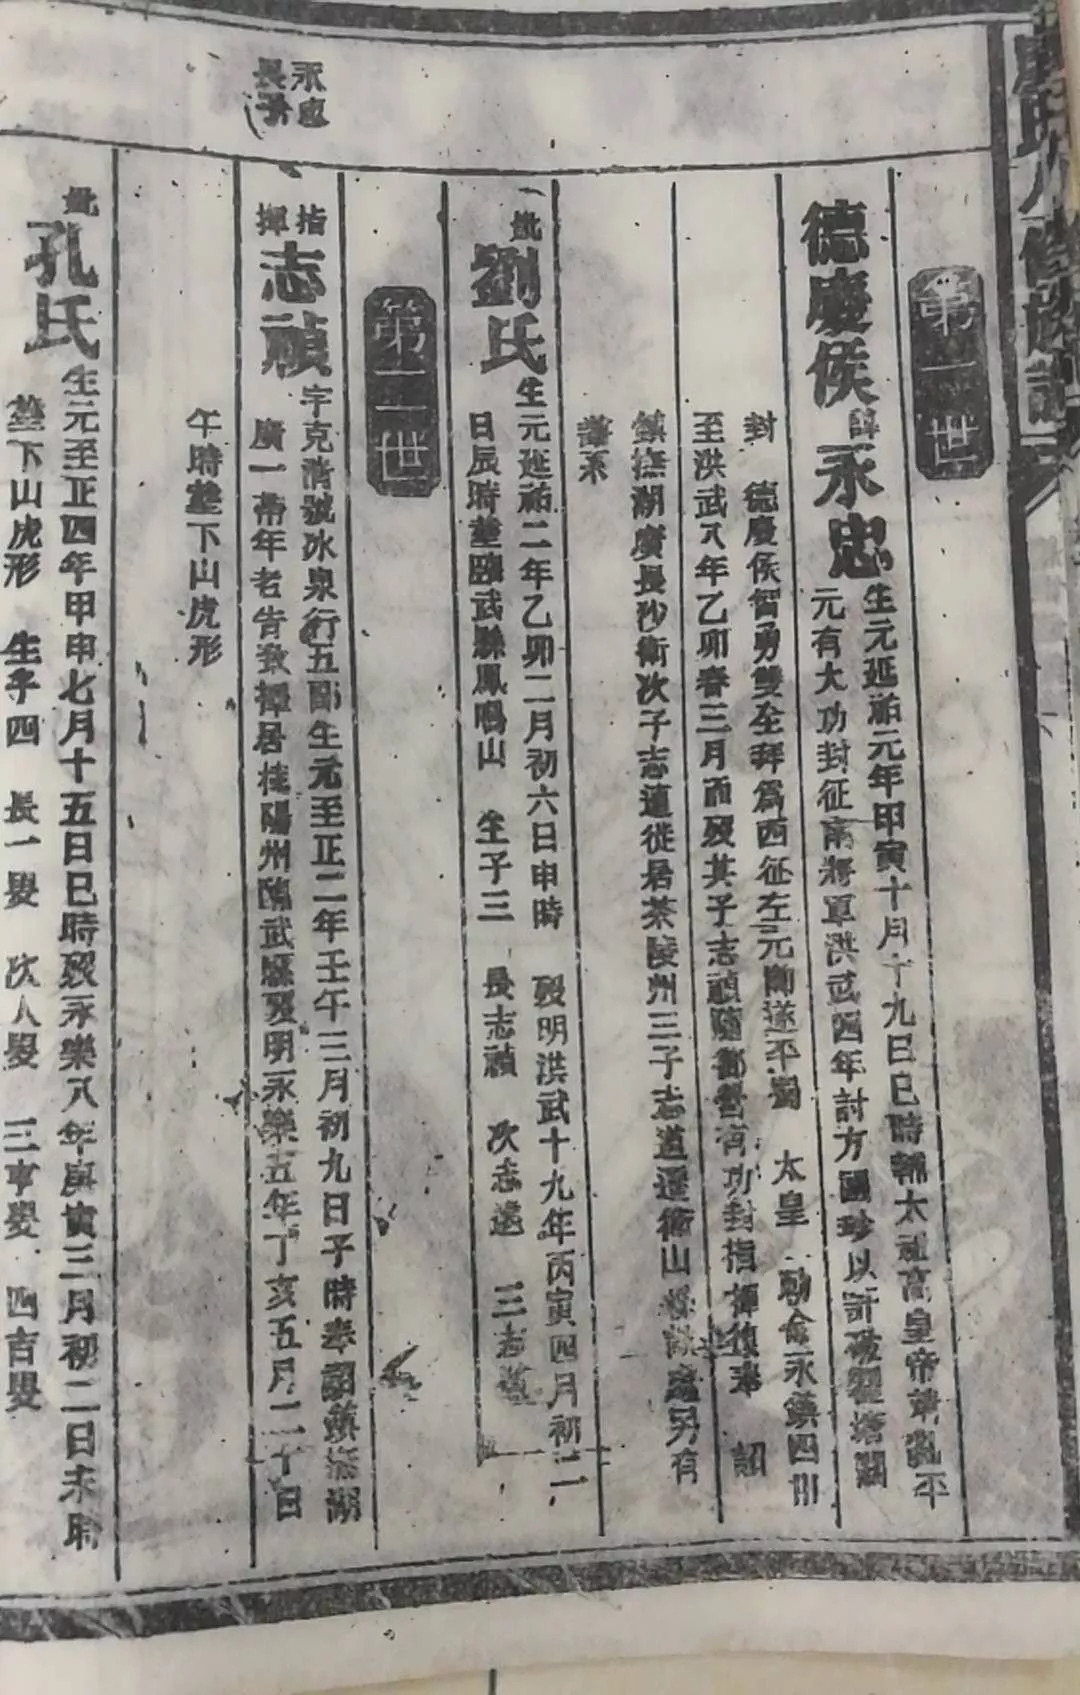 氏八修族譜
第一世
德慶侯諱永忠
生元延祐元年甲寅十月十九日巳時輔太祖高皇帝靖亂平
元有大功封征南將軍洪武四年討方國珍以計破瞿塘關
封 德慶侯智勇雙全拜爲西征左元帥遂平蜀 太皇 勅命永鎮四川
至洪武八年乙卯春三月而歿其子志禎隨都督有功封指揮後奉 詔
鎮撫湖廣長沙衛次子志遠徙居茶陵州三子志道遷衡山 另有
譜系
妣劉氏
生元延祐二年乙卯二月初六日申時 歿明洪武十九年丙寅四月初二
日辰時塟臨武縣鳳鳴山 生子三 長志禎 次志遠 三志道
第二世
永忠
長子
指揮志禎
字克清號冰泉行五郎生元至正二年壬午三月初九日子時奉詔鎮撫湖
廣一帶年老告致擇居桂陽州臨武縣歿明永樂五年丁亥五月二十日
午時塟下山虎形
妣孔氏
生元至正四年甲申七月十五日巳時歿永樂八年庚寅三月初二日未時
塟下山虎形 生子四 長一旻 次人旻 三亨旻 四吉旻